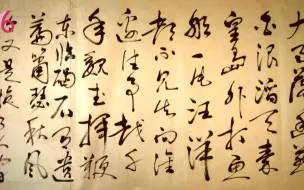 大雨落幽燕
白浪滔天秦
皇岛外打鱼
船一片汪洋
都不见知向谁
边往事越千
年魏武挥鞭
东临碣石有遗
篇萧瑟秋风
又是换